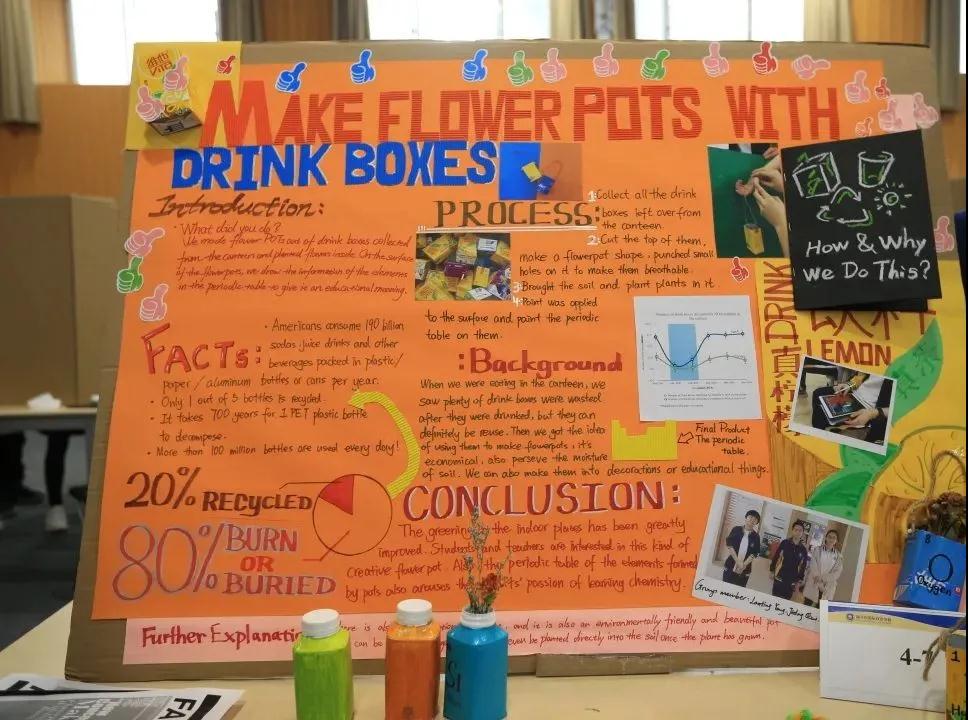 MAKE FLOWER POTS WITH
DRINK BOXES
Introduction:
· What did you do?
We made flower POTs out of drink boxes collected
from the canteen and planted flowers inside. On the surface
of the flowerpots, we draw the information of the elements
in the periodic table to give is an educational meaning.
FACTs:
· Americans consume 190 billion
sodas juice drinks and other
beverages packed in plastic/
paper / aluminum bottles or cans per year.
· Only 1 out of 5 bottles is recycled.
· It takes 700 years for 1 PET plastic bottle
to decompose.
· More than 100 million bottles are used every day!
20% RECYCLED
80% BURN
OR
BURIED
PROCESS:
1. Collect all the drink
boxes left over from
the canteen.
2. Cut the top of them,
make a flowerpot shape, punched small
holes on it to make them breathable.
3. Brought the soil and plant plants in it.
4. Paint was applied
to the surface and paint the periodic
table on them.
:Background
When we were eating in the canteen, we
saw plenty of drink boxes were wasted
after they were drunked, but they can
definitely be reuse. Then we got the idea
of using them to make flowerpots, it's
economical, also perseve the moisture
of soil. We can also make them into decorations or educational things.
Final Product
The periodic
table.
CONCLUSION:
The greening the indoor plants has been greatly
improved. Students and teachers are interested in this kind of
creative flower pot. the periodic table of the elements formed
by pots also arouses the passion of learning chemistry.
How & Why
we Do This?
DRINK
LEMON
Group member:
Further Explanation
and it is also an environmentally friendly and beautiful pot
can be even be planted directly into the soil once the plant has grown.
Si
8
O
Oxygen
4-
1
FA